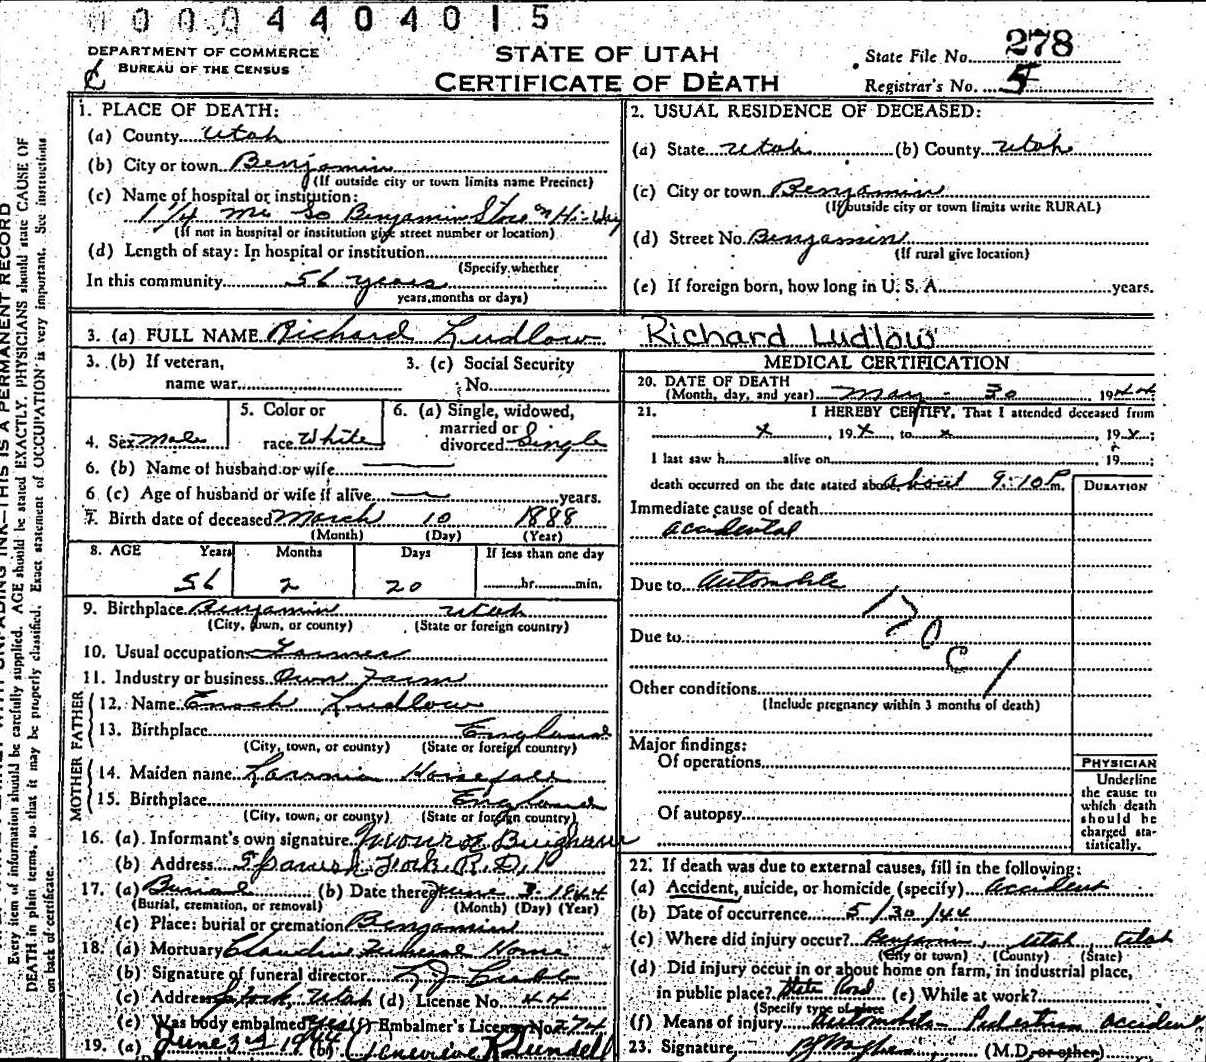 0000 4404015
DEPARTMENT OF COMMERCE
BUREAU OF THE CENSUS
STATE OF UTAH
CERTIFICATE OF DEATH
State File No. 278
Registrar's No. 5
THIS IS A PERMANENT RECORD
Every item of information should be carefully supplied. AGE should be stated EXACTLY. PHYSICIANS should state CAUSE OF
DEATH in plain terms, so that it may be properly classified. Exact statement of OCCUPATION is very important. See instructions
on back of certificate.
1. PLACE OF DEATH:
(a) County Utah
(b) City or town Benjamin
(If outside city or town limits name Precinct)
(c) Name of hospital or institution:
1 1/4 mi So Benjamin Store on Hi-Way
(If not in hospital or institution give street number or location)
(d) Length of stay: In hospital or institution
(Specify whether
In this community 56 years
years, months or days)
2. USUAL RESIDENCE OF DECEASED:
(a) State Utah (b) County Utah
(c) City or town Benjamin
(If outside city or town limits write RURAL)
(d) Street No. Benjamin
(If rural give location)
(e) If foreign born, how long in U. S. A. years.
3. (a) FULL NAME Richard Ludlow Richard Ludlow
3. (b) If veteran,
name war
3. (c) Social Security
No.
4. Sex Male
5. Color or
race White
6. (a) Single, widowed,
married or
divorced Single
6. (b) Name of husband or wife
6 (c) Age of husband or wife if alive years.
7. Birth date of deceased March 10 1888
(Month) (Day) (Year)
8. AGE Years Months Days If less than one day
56 2 20 hr. min.
9. Birthplace Benjamin Utah
(City, town, or county) (State or foreign country)
10. Usual occupation Farmer
11. Industry or business Own Farm
FATHER
12. Name Enoch Ludlow
13. Birthplace England
(City, town, or county) (State or foreign country)
MOTHER
14. Maiden name
15. Birthplace England
(City, town, or county) (State or foreign country)
16. (a) Informant's own signature Monroe
(b) Address Spanish Fork R.D. 1
17. (a) Burial (b) Date thereof June 3 1944
(Burial, cremation, or removal) (Month) (Day) (Year)
(c) Place: burial or cremation Benjamin
18. (a) Mortuary Claudin Funeral Home
(b) Signature of funeral director
(c) Address Sp. Fork, Utah (d) License No. 44
(e) Was body embalmed? yes (f) Embalmer's License No. 274
19. (a) June 3rd 1944 (b) Genevieve R Lundell
MEDICAL CERTIFICATION
20. DATE OF DEATH
(Month, day, and year) May - 30 1944
21. I HEREBY CERTIFY, That I attended deceased from
x, 19x, to x, 19x;
I last saw h alive on 19 ;
death occurred on the date stated above, about 9:10 P m.
DURATION
Immediate cause of death
accidental
Due to Automobile
170 c 1
Due to
Other conditions
(Include pregnancy within 3 months of death)
Major findings:
Of operations
Of autopsy
PHYSICIAN
Underline
the cause to
which death
should be
charged sta-
tistically.
22. If death was due to external causes, fill in the following:
(a) Accident, suicide, or homicide (specify) accident
(b) Date of occurrence 5/30/44
(c) Where did injury occur? Benjamin, Utah, Utah
(City or town) (County) (State)
(d) Did injury occur in or about home on farm, in industrial place,
in public place? State Road (e) While at work?
(Specify type of place
(f) Means of injury Automobile - Pedestrian accident
23. Signature (M.D. or other)